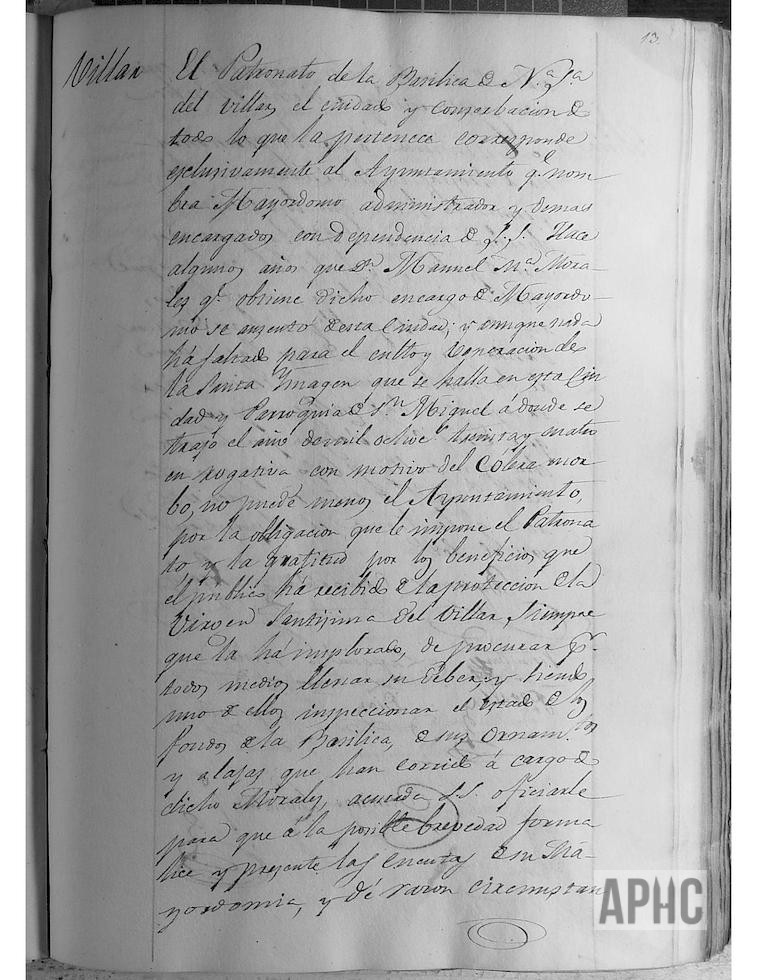 13.
Villar
El Patronato de la Basilica de N.ª S.ª
del Villar, el cuidado y conserbacion de
todo lo que la pertenece corresponde
esclusivamente al Ayuntamiento q.e nom-
bra Mayordomo administrador y demas
encargados con dependencia de S.S. Hace
algunos años que D.n Manuel M.ª Mora-
les q.e obtiene dicho encargo de Mayordo-
mo se ausento de esta Ciudad; y aunque nada
há faltado para el culto y veneracion de
la Santa Ymagen que se halla en esta Ciu
dad y Parroquia de S.n Miguel á donde se
trajo el año de mil ochoc.s treinta y cuatro
en rogativa con motivo del Cólera mor
bo, no puede menos el Ayuntamiento,
por la obligacion que le impone el Patrona
to y la gratitud por los beneficios que
el publico há recibido de la proteccion de la
Virgen Santisima del Villar siempre
que la há implorado, de procurar p.r
todos medios llenar su deber, y siendo
uno de ellos inspeccionar el estado de los
fondos de la Basilica, de sus Ornam.tos
y alajas que han corrido á cargo de
dicho Morales, acuerda S.S. oficiarle
para que á la posible brevedad forma
lice y presente las cuentas de su Ma-
yordomia, y dé razon circunstan
APHC